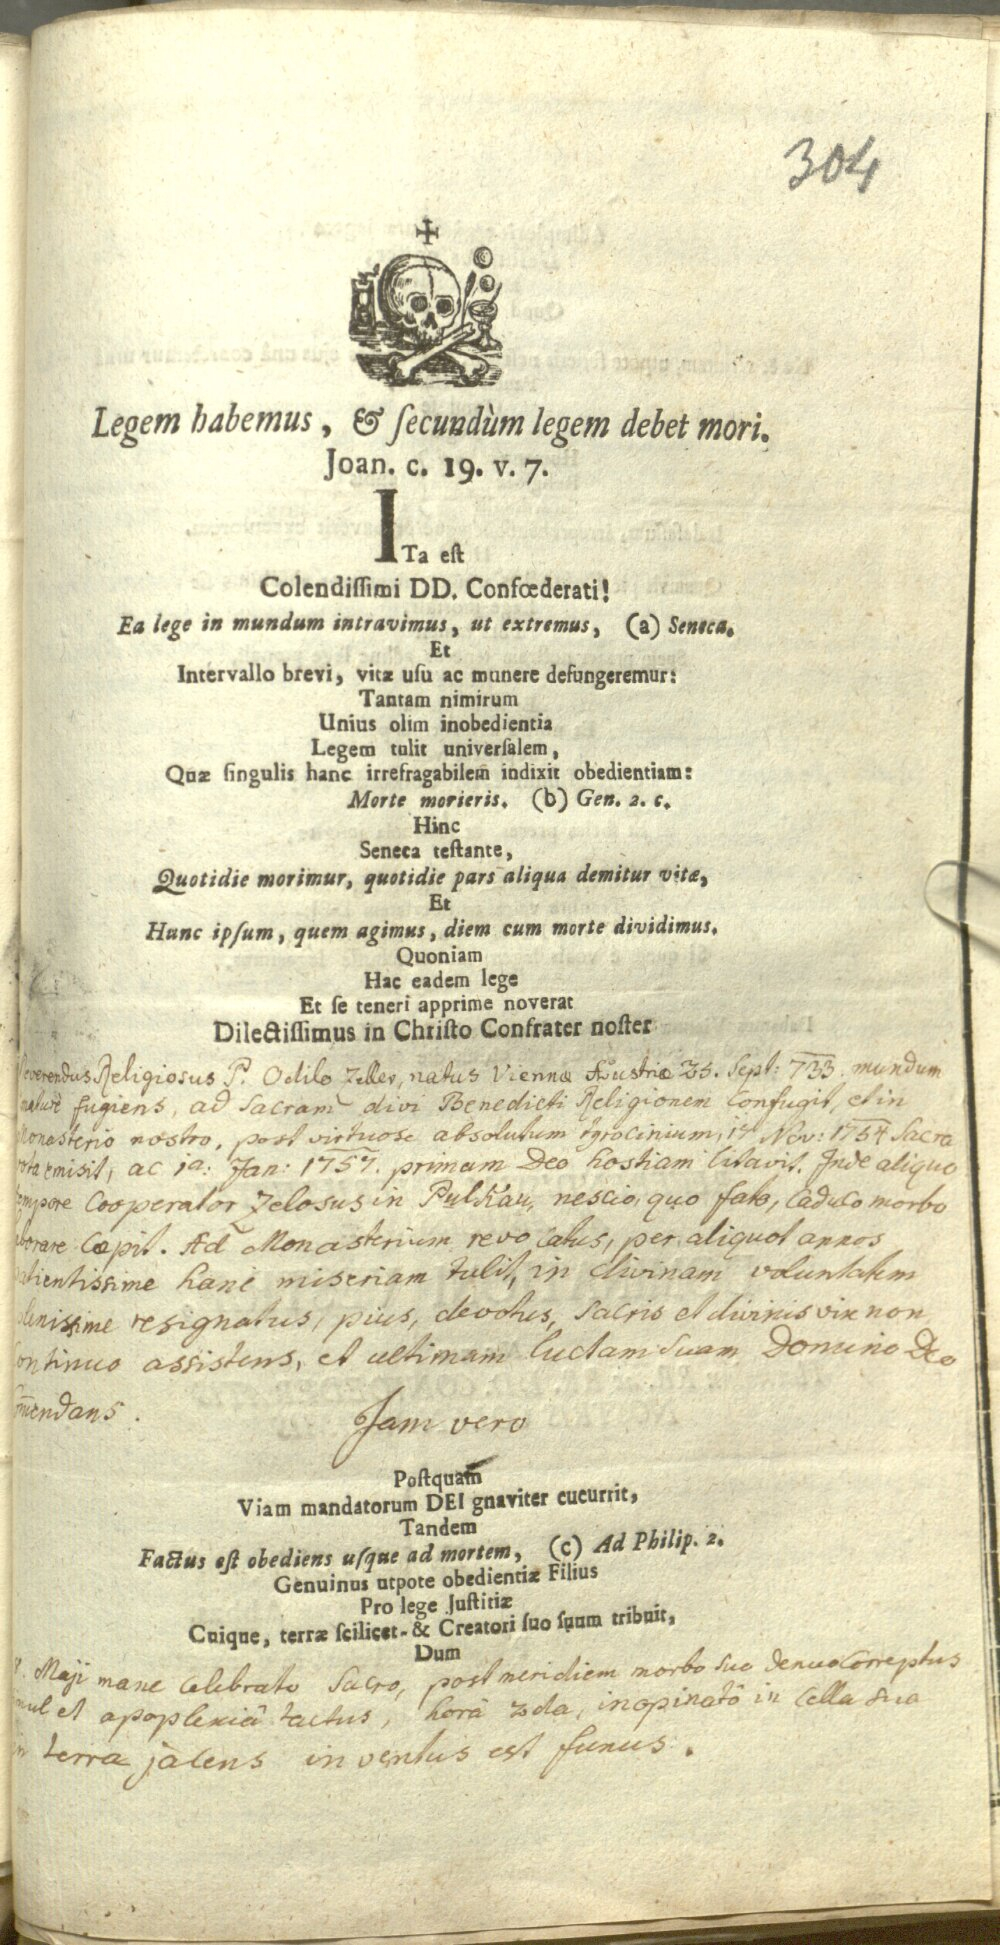 304
Legem habemus, & ſecundùm legem debet mori.
Joan. c. 19. v. 7.
ITa eſt
Colendiſſimi DD. Confœderati!
Ea lege in mundum intravimus, ut extremus, (a) Seneca.
Et
Intervallo brevi, vitæ uſu ac munere defungeremur:
Tantam nimirum
Unius olim inobedientia
Legem tulit univerſalem,
Quæ ſingulis hanc irrefragabilem indixit obedientiam:
Morte morieris. (b) Gen. 2. c.
Hinc
Seneca teſtante,
Quotidie morimur, quotidie pars aliqua demitur vitæ,
Et
Hunc ipſum, quem agimus, diem cum morte dividimus.
Quoniam
Hac eadem lege
Et ſe teneri apprime noverat
Dilectiſſimus in Chriſto Confrater noſter
Reverendus Religiosus P. Odilo Zeller, natus Viennæ Austriæ 25. Sept: 733. mundum
mature fugiens, ad Sacram divi Benedicti Religionem confugit, et in
Monasterio nostro, post virtuose absolutum tyrocinium, 17 Nov: 1754 Sacra
vota emisit, ac 1a: Jan: 1757. primam Deo hostiam litavit. Inde aliquo
tempore Cooperator Zelosus in Pulkau, nescio, quo fato, caduco morbo
laborare cæpit. Ad Monasterium revocatus, per aliquot annos
patientissime hanc miseriam tulit, in divinam voluntatem
plenissime resignatus, pius, devotus, sacris et divinis vix non
continuo assistens, et ultimam luctam suam Domino Deo
com̄endans.
Jam vero
Poſtquam
Viam mandatorum DEI gnaviter cucurrit,
Tandem
Factus eſt obediens uſque ad mortem, (c) Ad Philip. 2.
Genuinus utpote obedientiæ Filius
Pro lege Juſtitiæ
Cuique, terræ ſcilicet- & Creatori ſuo ſuum tribuit,
Dum
Maji mane celebrato Sacro, post meridiem morbo suo denuo correptus
simul et apoplexiâ tactus, horâ 2da, inopinatô in cella sua
in terra jacens inventus est funus.